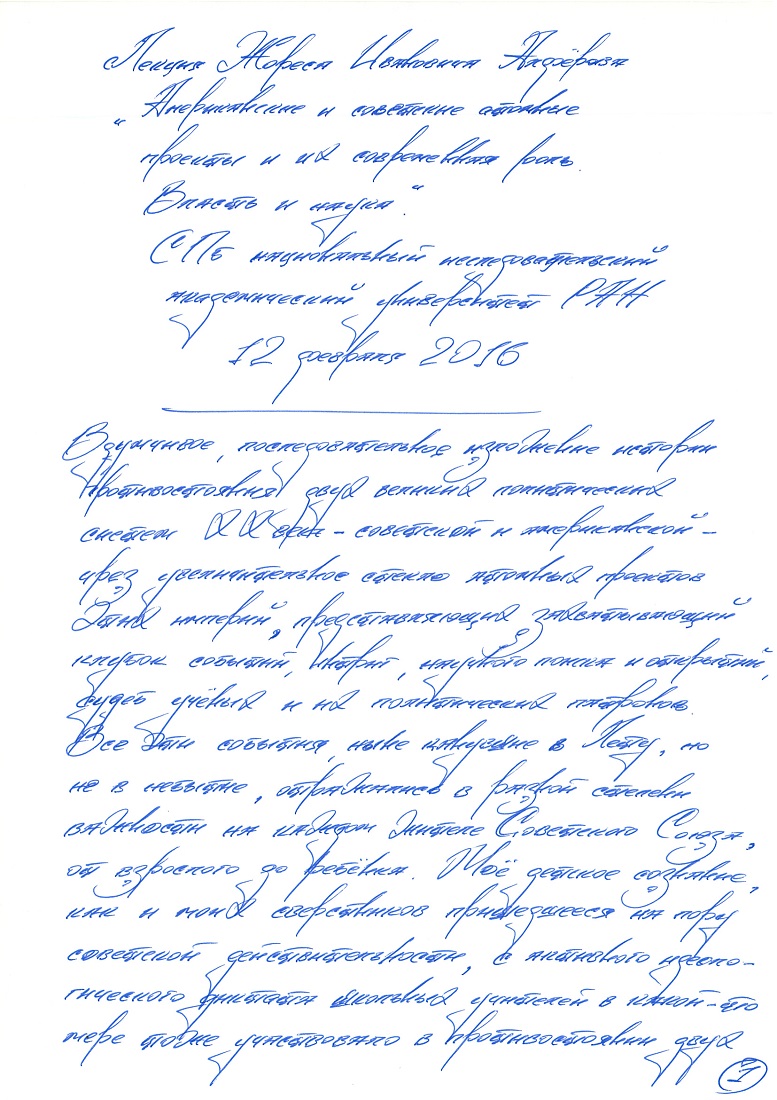 Лекция Жореса Ивановича Алфёрова
"Американские и советские атомные
проекты и их современная роль.
Власть и наука".
СПб национальный исследовательский
академический университет РАН
12 февраля 2016
Вдумчивое, последовательное изложение истории
противостояния двух великих политических
систем XX века - советской и американской -
чрез увеличительное стекло атомных проектов
этих империй, представляющих захватывающий
клубок событий, интриг, научного поиска и открытий,
судеб учёных и их политических патронов.
Все эти события, ныне канувшие в Лету, но
не в небытие, отражались в разной степени
важности на каждом жителе Советского Союза,
от взрослого до ребёнка. Моё детское сознание,
как и моих сверстников пришедшееся на пору
советской действительности, с активного идеоло-
гического диктата школьных учителей в какой-то
мере тоже участвовало в противостоянии двух
1